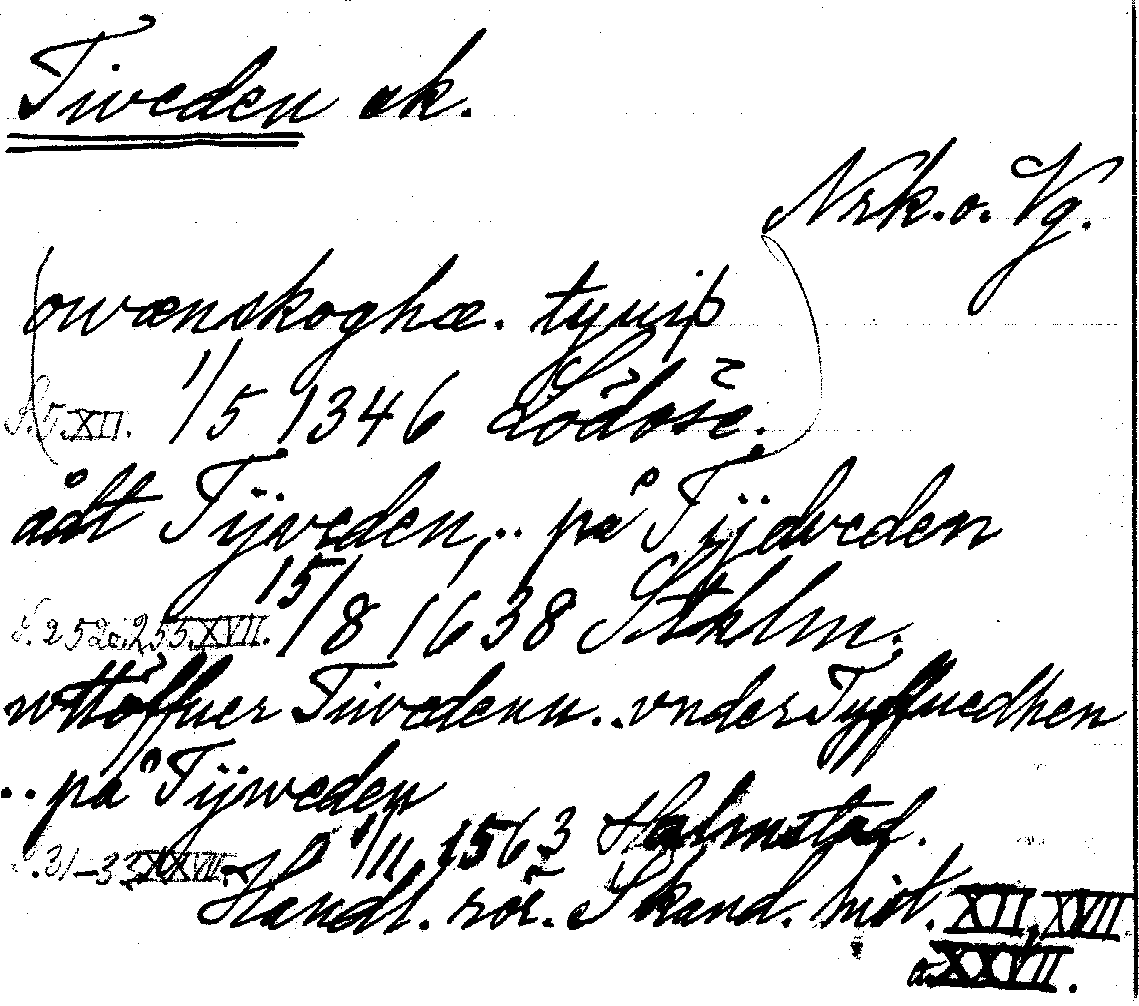 Tiveden sk.
Nrk. o. Vg.
owænskoghæ. tyuiþ
S. 5 XII. 1/5 1346 Lödöse.
ådt Tijweden, .. på Tijdweden
S. 252 o. 255 XVII. 15/8 1638 Stklm.
wttöffuer Tiwedenn .. vnder Tyffuedhen
.. på Tijweden
S. 31–33 XXVII. 1/11 1563 Halmstad.
Handl. rör. Skand. hist. XII, XVII
o. XXVII.